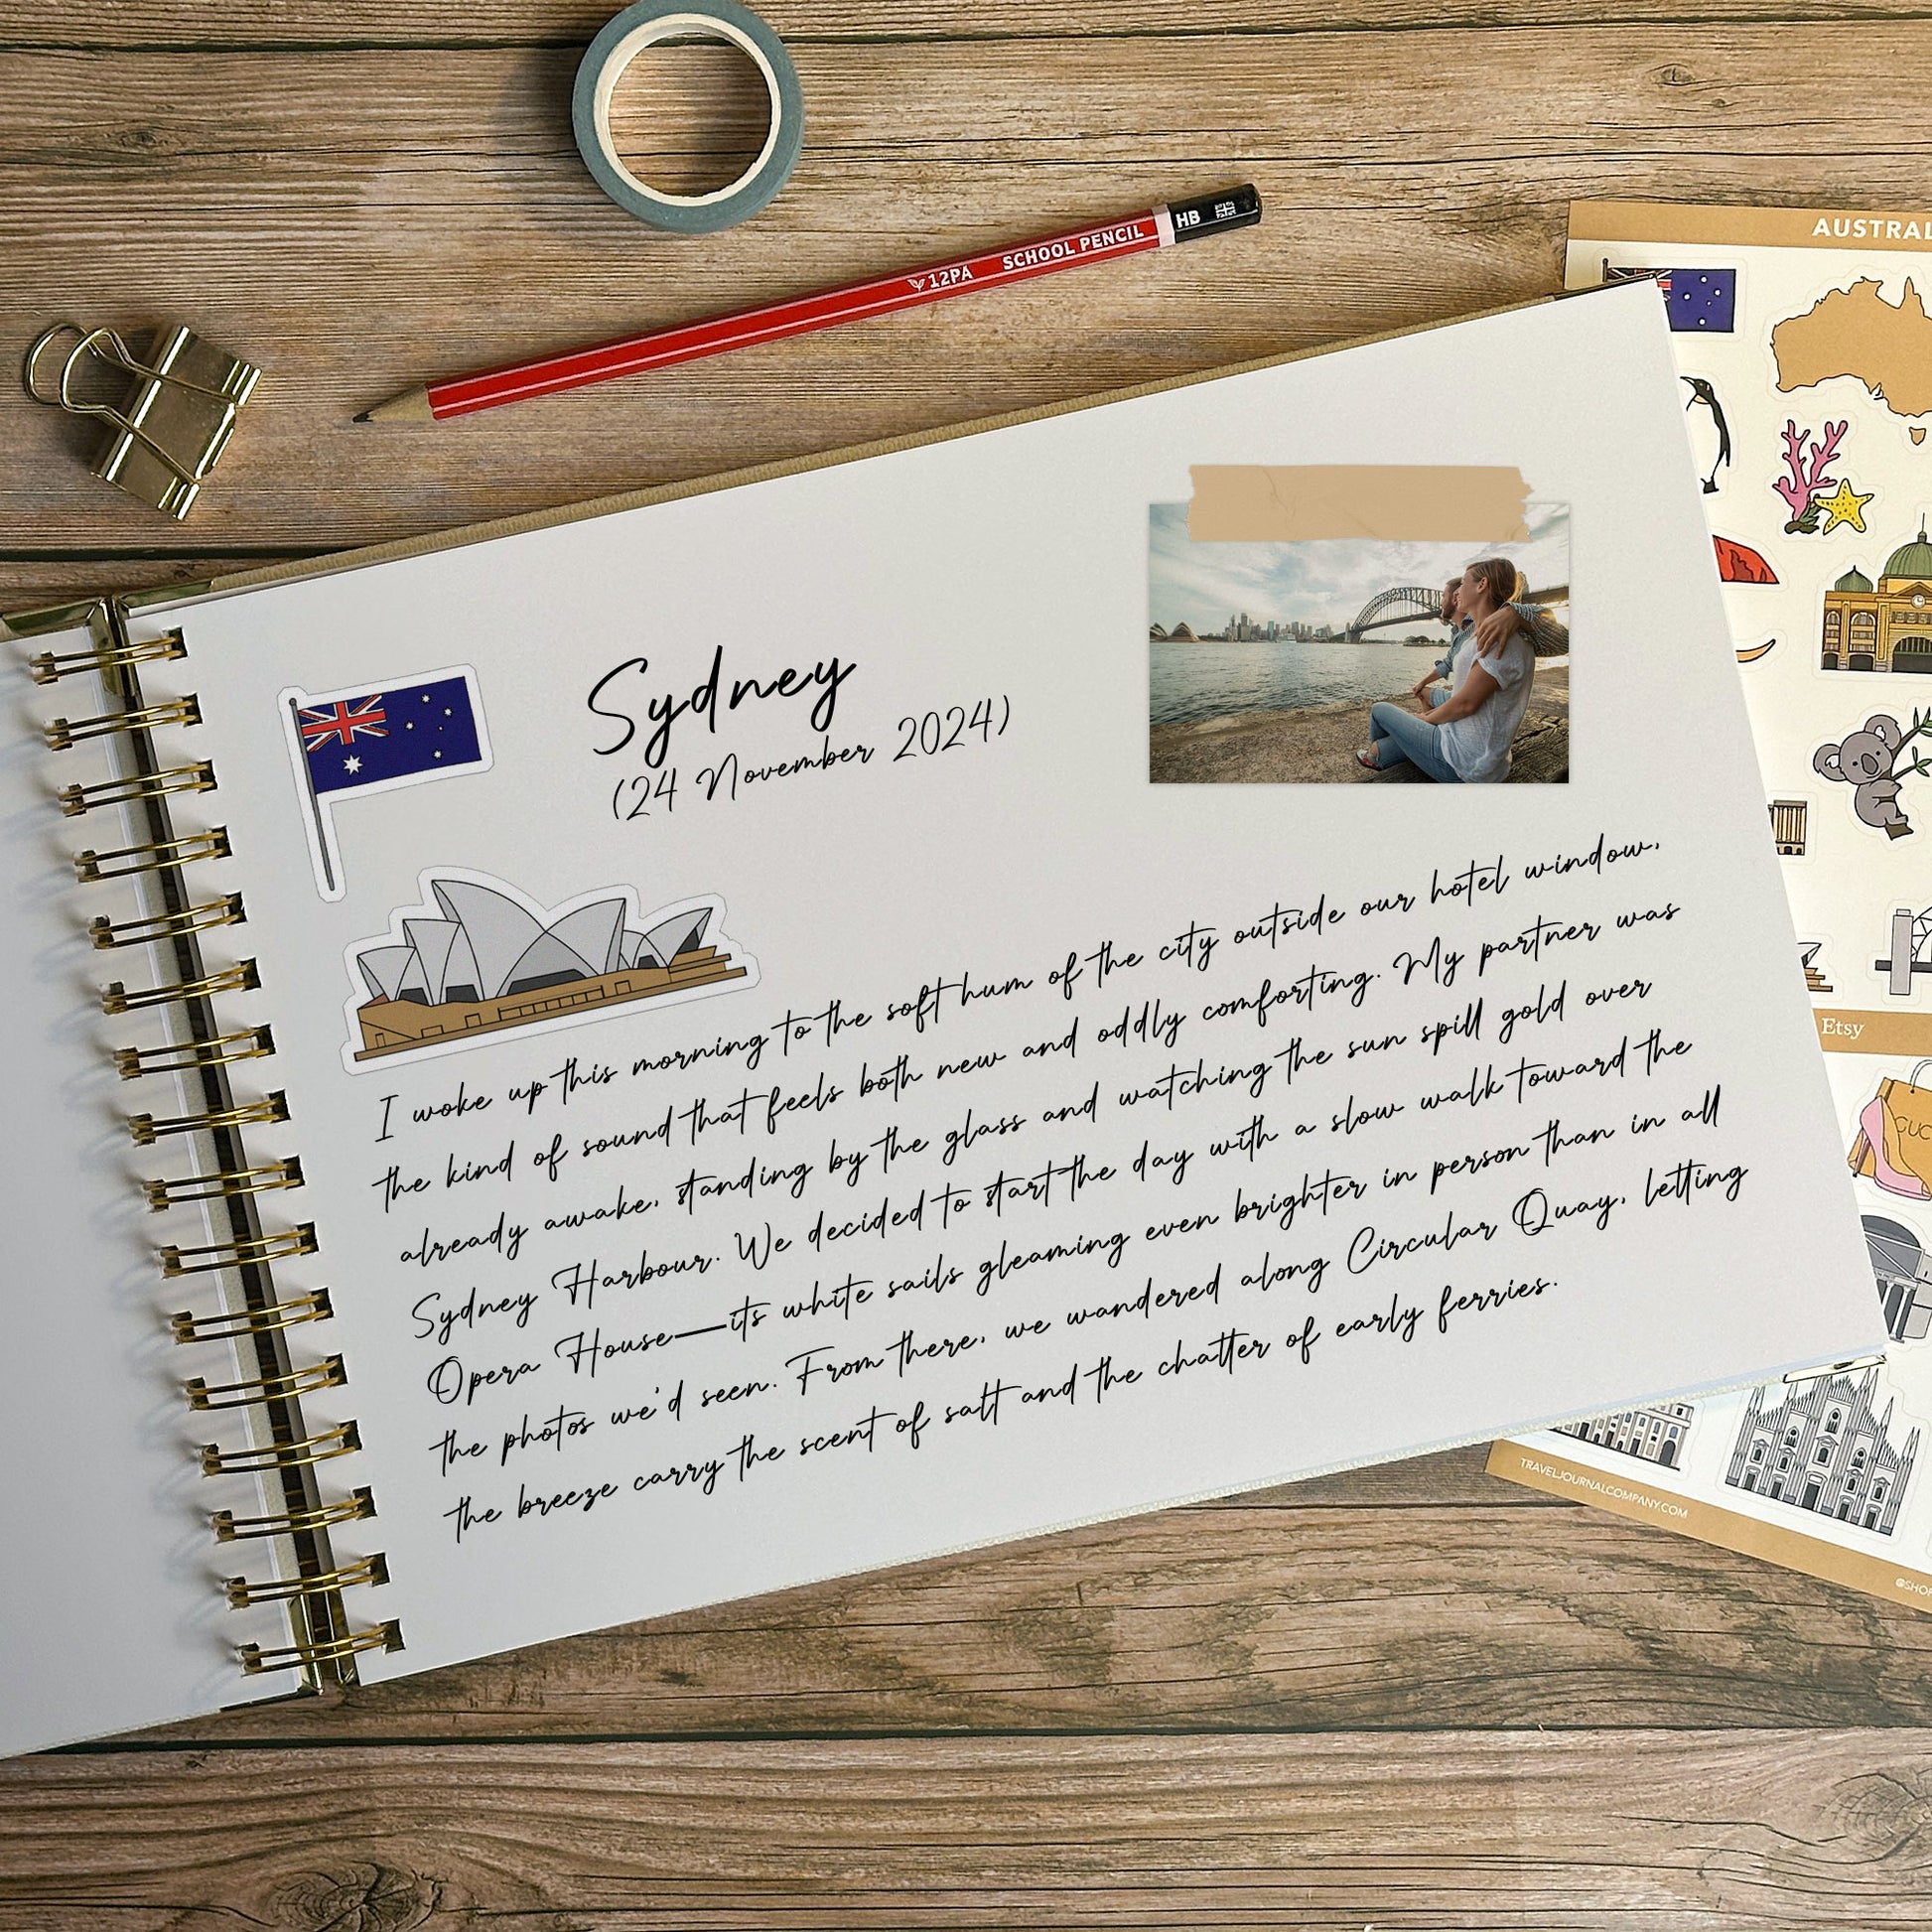 12PA SCHOOL PENCIL HB
AUSTRAL
Sydney
(24 November 2024)
I woke up this morning to the soft hum of the city outside our hotel window,
the kind of sound that feels both new and oddly comforting. My partner was
already awake, standing by the glass and watching the sun spill gold over
Sydney Harbour. We decided to start the day with a slow walk toward the
Opera House—its white sails gleaming even brighter in person than in all
the photos we'd seen. From there, we wandered along Circular Quay, letting
the breeze carry the scent of salt and the chatter of early ferries.
Etsy
GUC
TRAVELJOURNALCOMPANY.COM
@SHOP